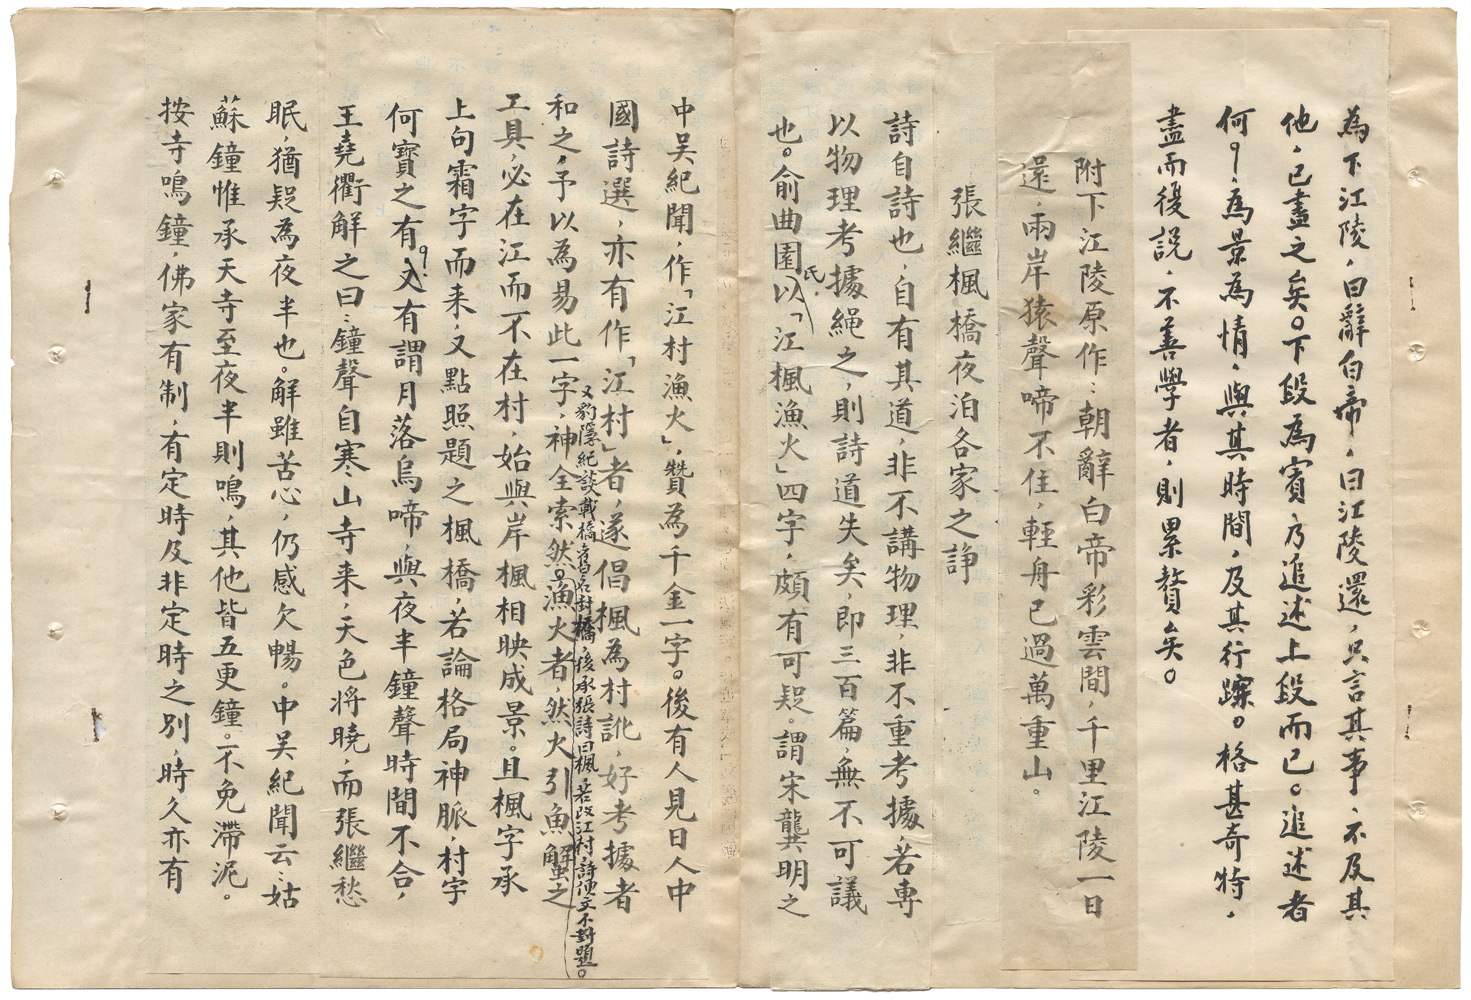 為下江陵，曰辭白帝，曰江陵還，只言其事，不及其
他，已盡之矣。下段為賓，乃追述上段而已。追述者
何？，為景為情，與其時間，及其行蹤。格甚奇特，
盡而復說，不善學者，則累贅矣。
附下江陵原作：朝辭白帝彩雲間，千里江陵一日
還，兩岸猿聲啼不住，輕舟已過萬重山。
張繼楓橋夜泊各家之諍
詩自詩也，自有其道，非不講物理，非不重考據，若專
以物理考據繩之，則詩道失矣，即三百篇，無不可議
也。俞曲園氏以「江楓漁火」四字，頗有可疑。謂宋龔明之
中吳紀聞，作「江村漁火」，贊為千金一字。後有人見日人中
國詩選，亦有作「江村」者，遂倡楓為村訛，好考據者
又豹隱紀談載橋舊名封橋，後承張詩曰楓，若改江村，詩便文不對題。
和之，予以為易此一字，神全索然。漁火者，然火引魚蟹之
工具，必在江而不在村，始與岸楓相映成景。且楓字承
上句霜字而来，又點照題之楓橋，若論格局神脈，村字
何寶之有？又有謂月落烏啼，與夜半鐘聲時間不合，
王堯衢解之曰：鐘聲自寒山寺来，天色將曉，而張繼愁
眠，猶疑為夜半也。解雖苦心，仍感欠暢。中吳紀聞云：姑
蘇鐘惟承天寺至夜半則鳴，其他皆五更鐘。不免滯泥。
按寺鳴鐘，佛家有制，有定時及非定時之別，時久亦有